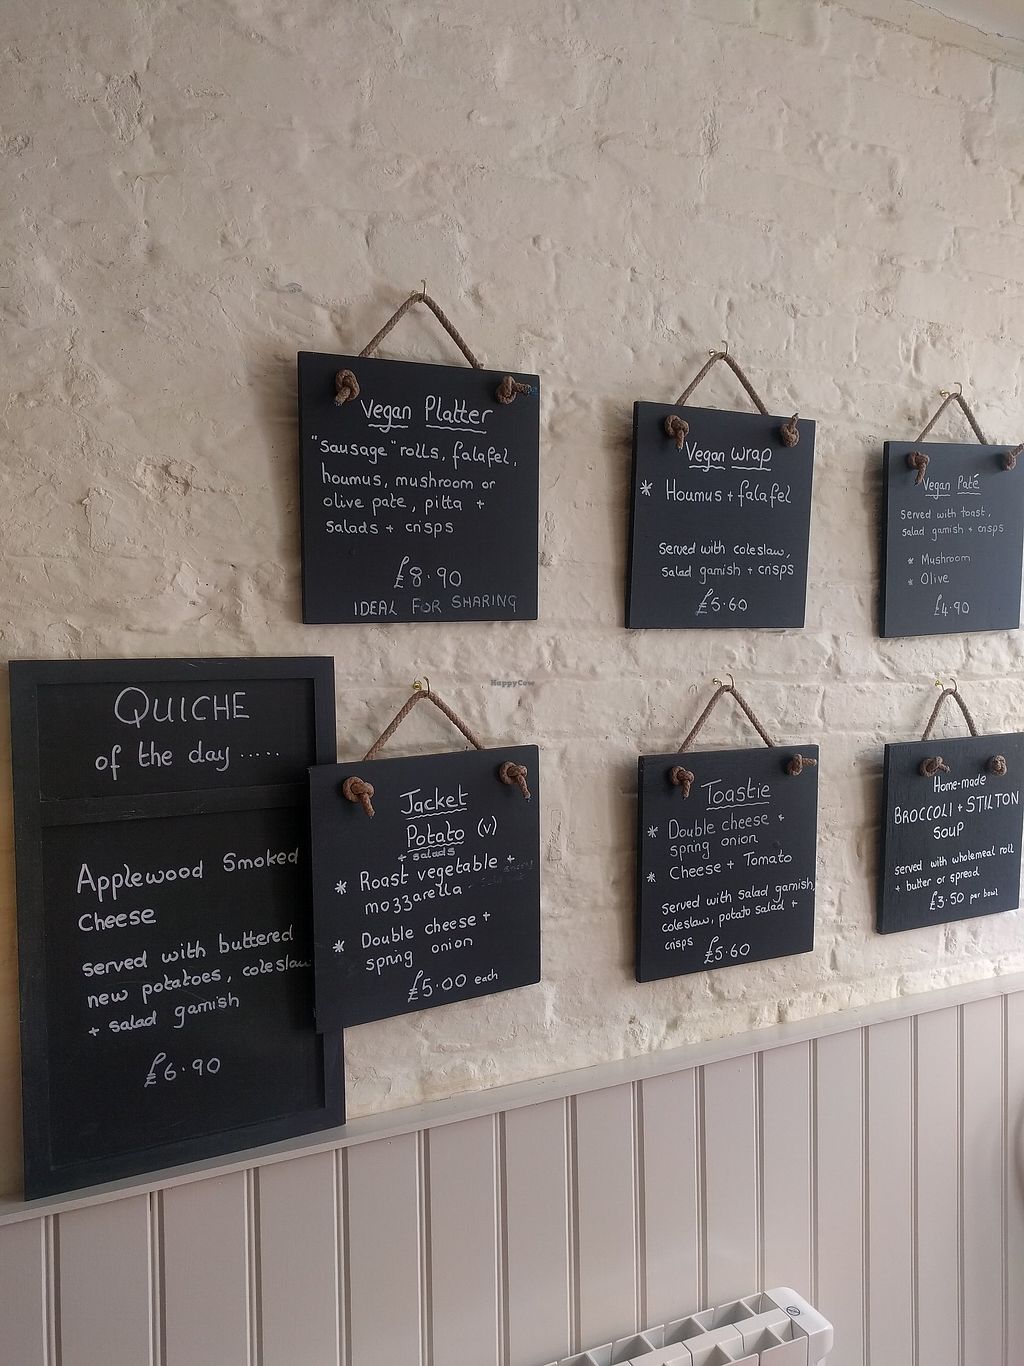 Vegan Platter
"Sausage" rolls, falafel,
houmus, mushroom or
olive pate, pitta +
salads + crisps
£8.90
IDEAL FOR SHARING
Vegan wrap
* Houmus + falafel
Served with coleslaw,
salad garnish + crisps
£5.60
Vegan Paté
Served with toast,
salad garnish + crisps
* Mushroom
* Olive
£4.90
HappyCow
QUICHE
of the day.....
Applewood Smoked
Cheese
served with buttered
new potatoes, coleslaw
+ salad garnish
£6.90
Jacket
Potato (v)
+ salads
* Roast vegetable +
mozzarella
* Double cheese +
spring onion
£5.00 each
Toastie
* Double cheese +
spring onion
* Cheese + Tomato
served with salad garnish,
coleslaw, potato salad +
crisps £5.60
Home-made
BROCCOLI + STILTON
SOUP
served with wholemeal roll
+ butter or spread
£3.50 per bowl